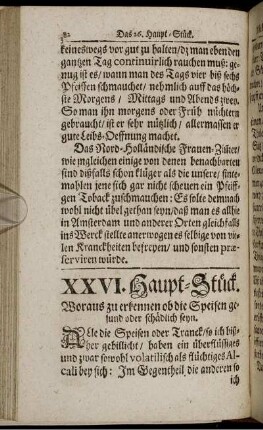 82 Das 26. Haupt-Stück.
keineswegs vor gut zu halten/dz man eben den
gantzen Tag continuirlich rauchen muß: ge-
nug ist es/ wann man des Tags vier biß sechs
Pfeiffen schmauchet/ nehmlich auff das höch-
ste Morgens/ Mittags und Abends zwey.
So man ihn morgens oder Früh nüchtern
gebraucht/ ist er sehr nützlich/ allermassen er
gute Leibs-Oeffnung machet.
Das Nord-Holländische Frauen-Zimer/
wie ingleichen einige von denen benachbarten
sind dißfalls schon klüger als die unsere/ sinte-
mahlen jene sich gar nicht scheuen ein Pfeiff-
gen Toback zuschmauchen: Es solte demnach
wohl nicht übel gethan seyn/ daß man es allhie
in Amsterdam und anderer Orten gleichfals
ins Werck stellte anerwogen es selbige von vie-
len Kranckheiten befreyen/ und sonsten præ-
serviren würde.
XXVI. Haupt-Stück.
Woraus zu erkennen ob die Speisen ge-
sund oder schädlich seyn.
Alle die Speisen oder Tranck/ so ich biß-
her gebillicht/ haben ein überflüssiges
und zwar sowohl volatilisch als flüchtiges Al-
cali bey sich: Im Gegentheil die anderen so
ich